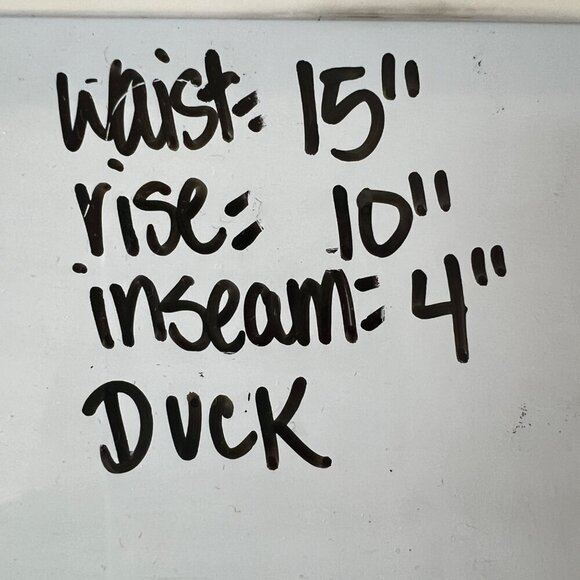 waist= 15"
rise= 10"
inseam= 4"
DUCK